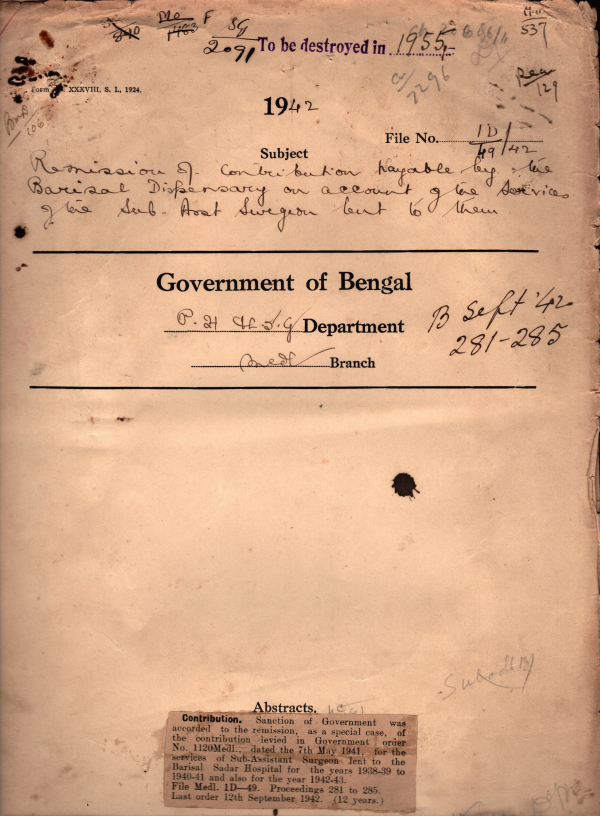 SG
2091
To be destroyed in 1955
537
7296
129
Form XXXVIII, S. I., 1924.
1942
File No. 1D/49/42
Subject
Remission of Contribution payable by the
Barisal Dispensary on account of the Services
of the Sub-Asst Surgeon lent to them
Government of Bengal
P. H & L. S. G Department
Medl Branch
B Sept '42
281-285
Abstracts.
Contribution. Sanction of Government was
accorded to the remission, as a special case, of
the contribution levied in Government order
No. 1120Medl., dated the 7th May 1941, for the
services of Sub-Assistant Surgeon lent to the
Barisal Sadar Hospital for the years 1938-39 to
1940-41 and also for the year 1942-43.
File Medl. 1D—49. Proceedings 281 to 285.
Last order 12th September 1942. (12 years.)